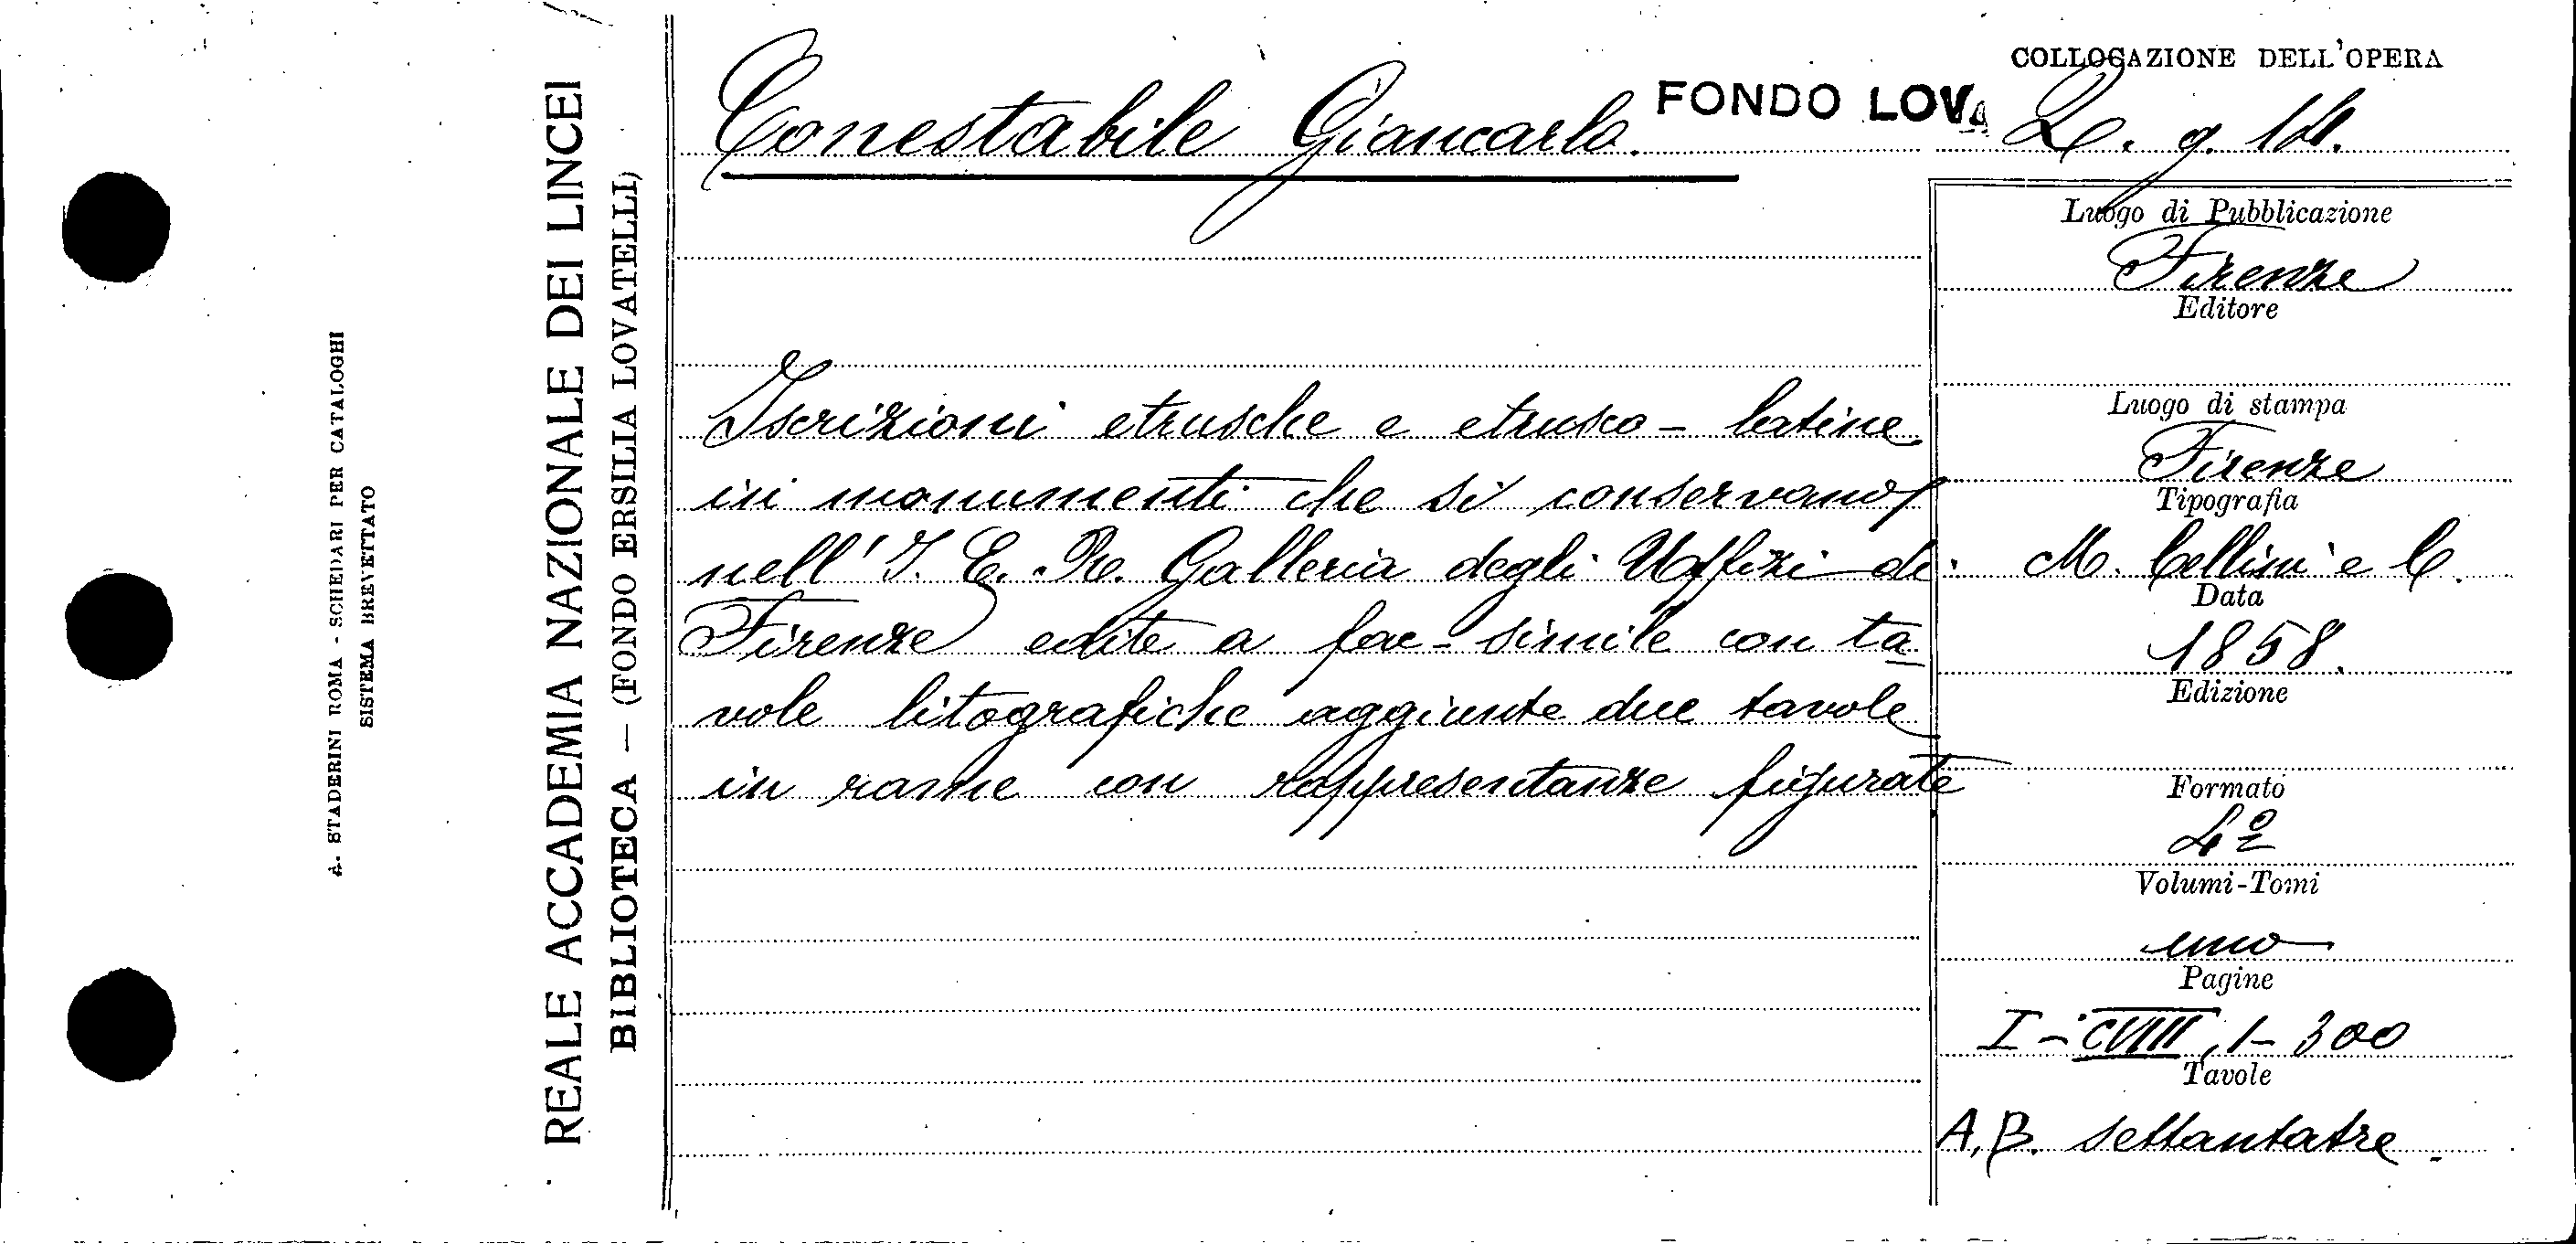 A. STADERINI ROMA - SCHEDARI PER CATALOGHI
SISTEMA BREVETTATO
REALE ACCADEMIA NAZIONALE DEI LINCEI
BIBLIOTECA — (FONDO ERSILIA LOVATELLI)
Conestabile Giancarlo.
FONDO LOVA
Iscrizioni etrusche e etrusco - latine
in monumenti che si conservano
nell' I. E. R. Galleria degli Uffizi di
Firenze edite a fac-simile con ta
vole litografiche aggiunte due tavole
in rame con rappresentanze figurate
COLLOCAZIONE DELL'OPERA
g. 14.
Luogo di Pubblicazione
Firenze
Editore
Luogo di stampa
Firenze
Tipografia
M. Cellini e C.
Data
1858.
Edizione
Formato
4º
Volumi-Tomi
uno
Pagine
I - CVIII, 1- 300
Tavole
A, B. settantatre